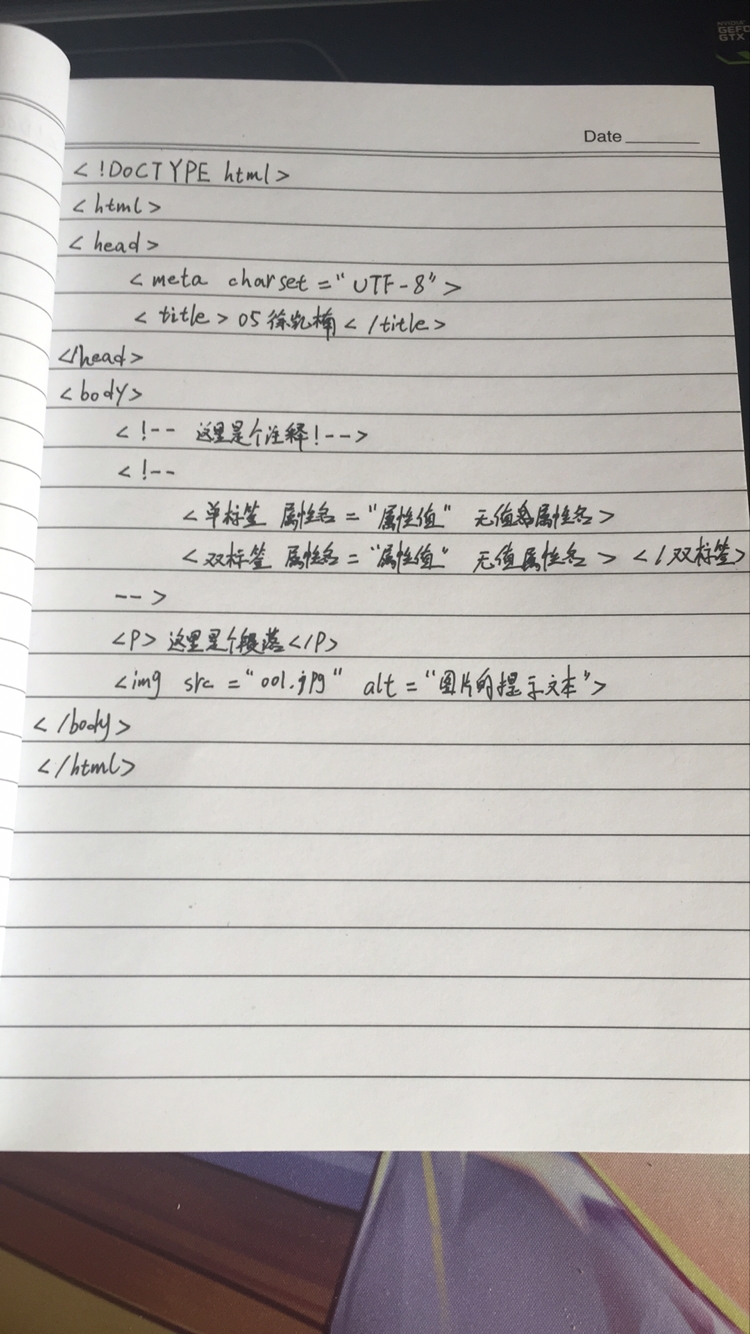 GEFO
GTX
Date
<!DOCTYPE html>
<html>
<head>
<meta charset="UTF-8">
<title>05徐凯楠</title>
</head>
<body>
<!-- 这里是个注释!-->
<!--
<单标签 属性名="属性值" 无值属性名>
<双标签 属性名="属性值" 无值属性名></双标签>
-->
<P>这里是个段落</P>
<img src="001.jpg" alt="图片的提示文本">
</body>
</html>